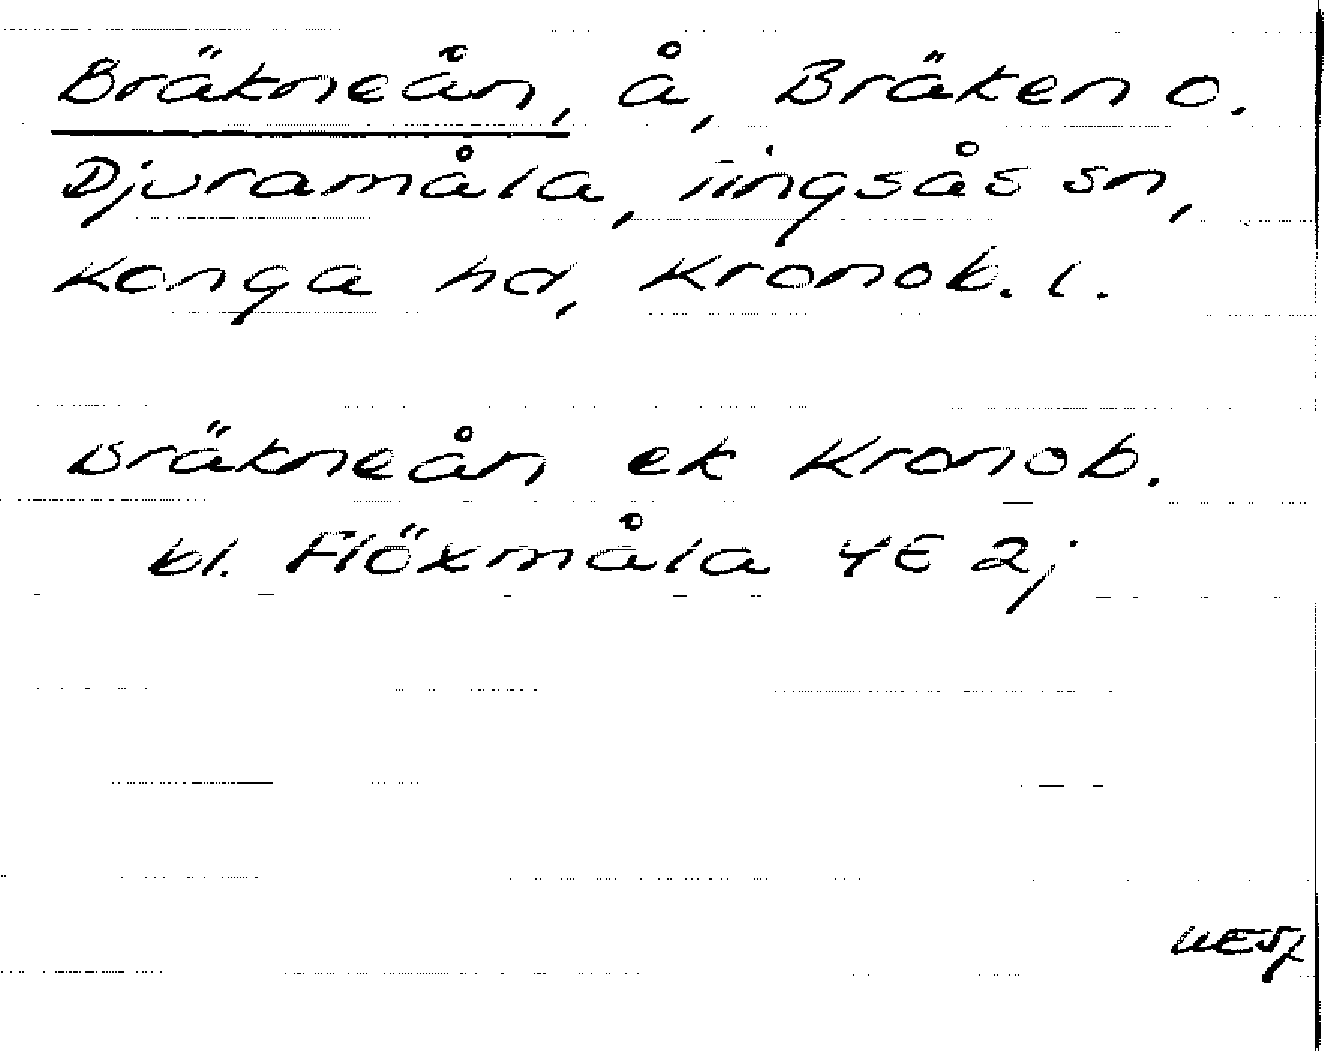 Bräkneån, å, Bräken o.
Djuramåla, Tingsås sn,
Konga hd, Kronob. l.
Bräkneån ek Kronob.
bl. Flöxmåla 4E 2j